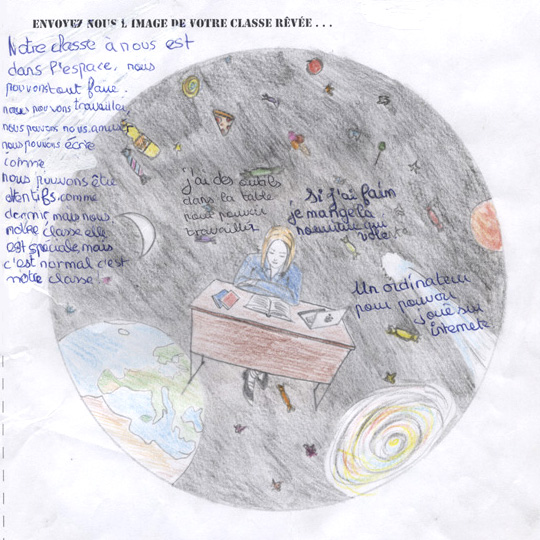 ENVOYEZ NOUS L IMAGE DE VOTRE CLASSE RÊVÉE . . .
Notre classe à nous est
dans l'espace, nous
pouvons tout faire.
nous pouvons travailler,
nous pouvons nous amuser
nous pouvons écrire
comme
nous pouvons être
attentifs comme
dormir mais nous
notre classe elle
est spéciale mais
c'est normal c'est
notre classe
j'ai des outils
dans la table
pour pouvoir
travailler
si j'ai faim
je mange la
nourriture qui
vole
Un ordinateur
pour pouvoir
joué sur
internete